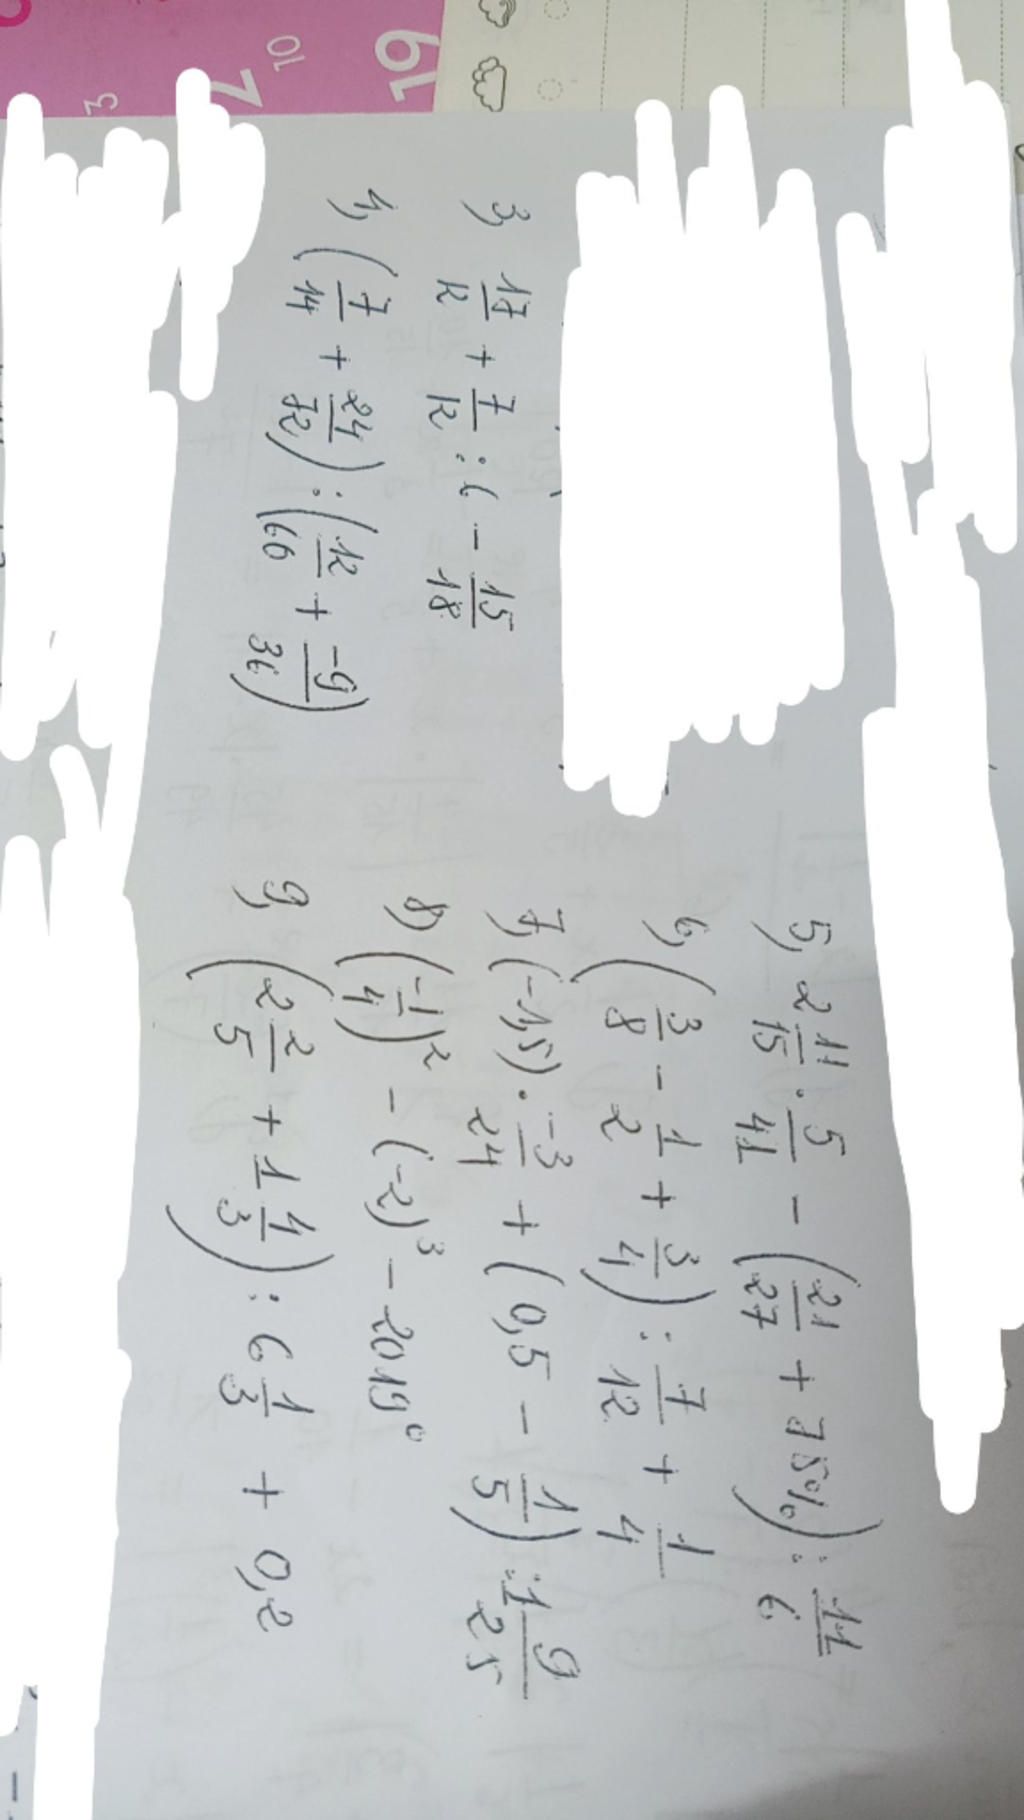 19
10
7
3
3, 17/12 + 7/12 : 6 - 15/18
1, (7/14 + 24/72) : (12/66 + -9/36)
5, 2 11/15 · 5/41 - (21/27 + 75%) : 11/6
6, (3/8 - 1/2 + 3/4) : 7/12 + 1/4
7, (-1,5) · -3/24 + (0,5 - 1/5) : 1 9/25
8, (-1/4)² - (-2)³ - 2019⁰
9, (2 2/5 + 1 1/3) : 6 1/3 + 0,2